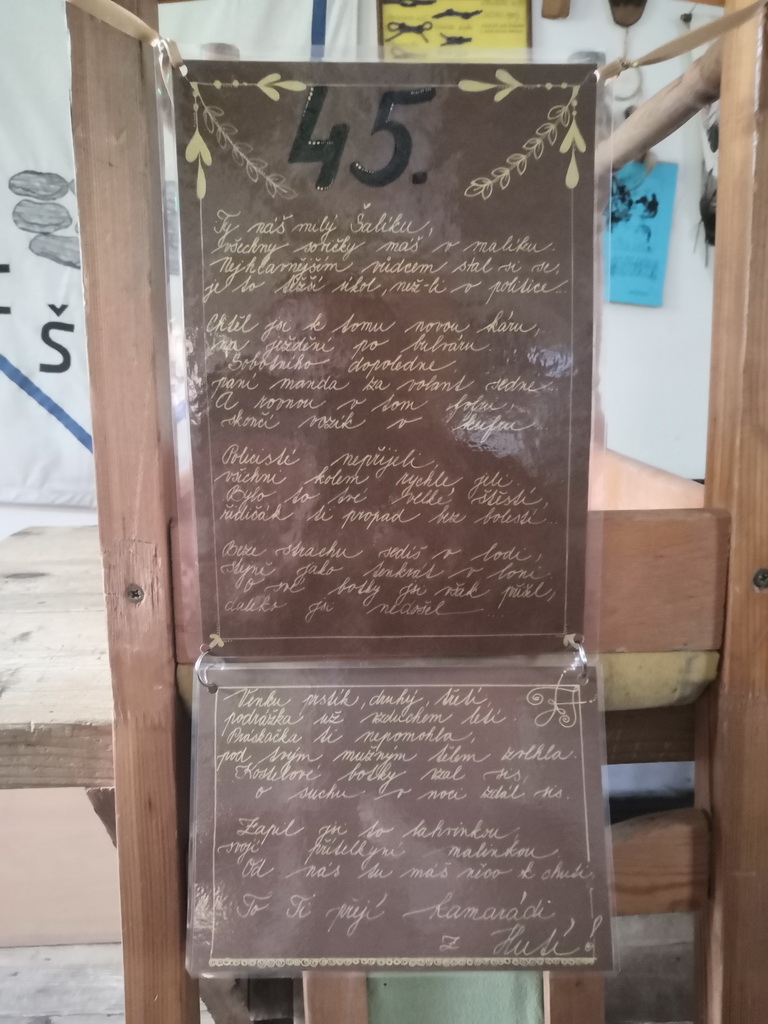 45.
Ty náš milý Šaliku,
všechny soněky máš v malíku.
Nejhlavnějším vůdcem stal si se,
je to těžší úkol, než-li v politice...
Chtěl jsi k tomu novou káru,
na ježdění po bulváru.
Sobotního dopoledne
paní manda za volant sedne.
A rovnou v tom fofru,
skončí vozík v kufru...
Policisté nepřijeli,
všichni kolem rychle jeli.
Bylo to tvé velké štěstí,
řidičák ti propad bez bolestí...
Beze strachu sedíš v lodi,
stejně jako tenkrát v loni.
O své botky jsi však přišel,
daleko jsi nedošel...
Venku prstík, druhý třetí,
podrážka už vzduchem letí.
Práskačka ti nepomohla,
pod tvým mužným tělem zvlhla.
Kostelové botky vzal sis,
o suchu v noci zdál sis.
Zapil jsi to lahvinkou,
svojí přítelkyní malinkou.
Od nás tu máš něco k chuti
To Ti přejí kamarádi
z Hutí!
Š